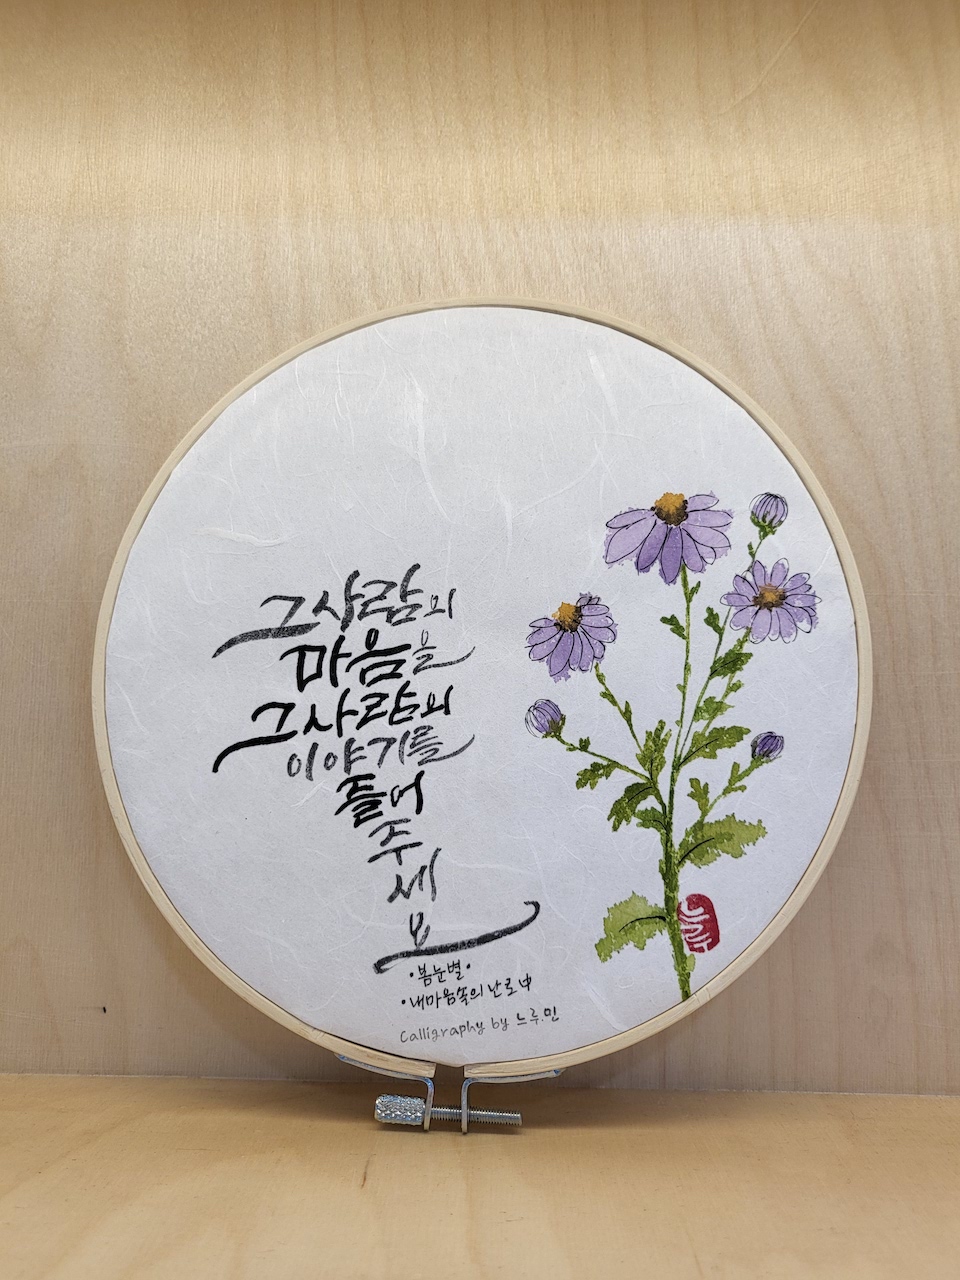 그 사람의
마음을
그 사람의
이야기를
들어
주
세
요
•봄눈별•
•내마음속의 난로中
Calligraphy by 느루.민